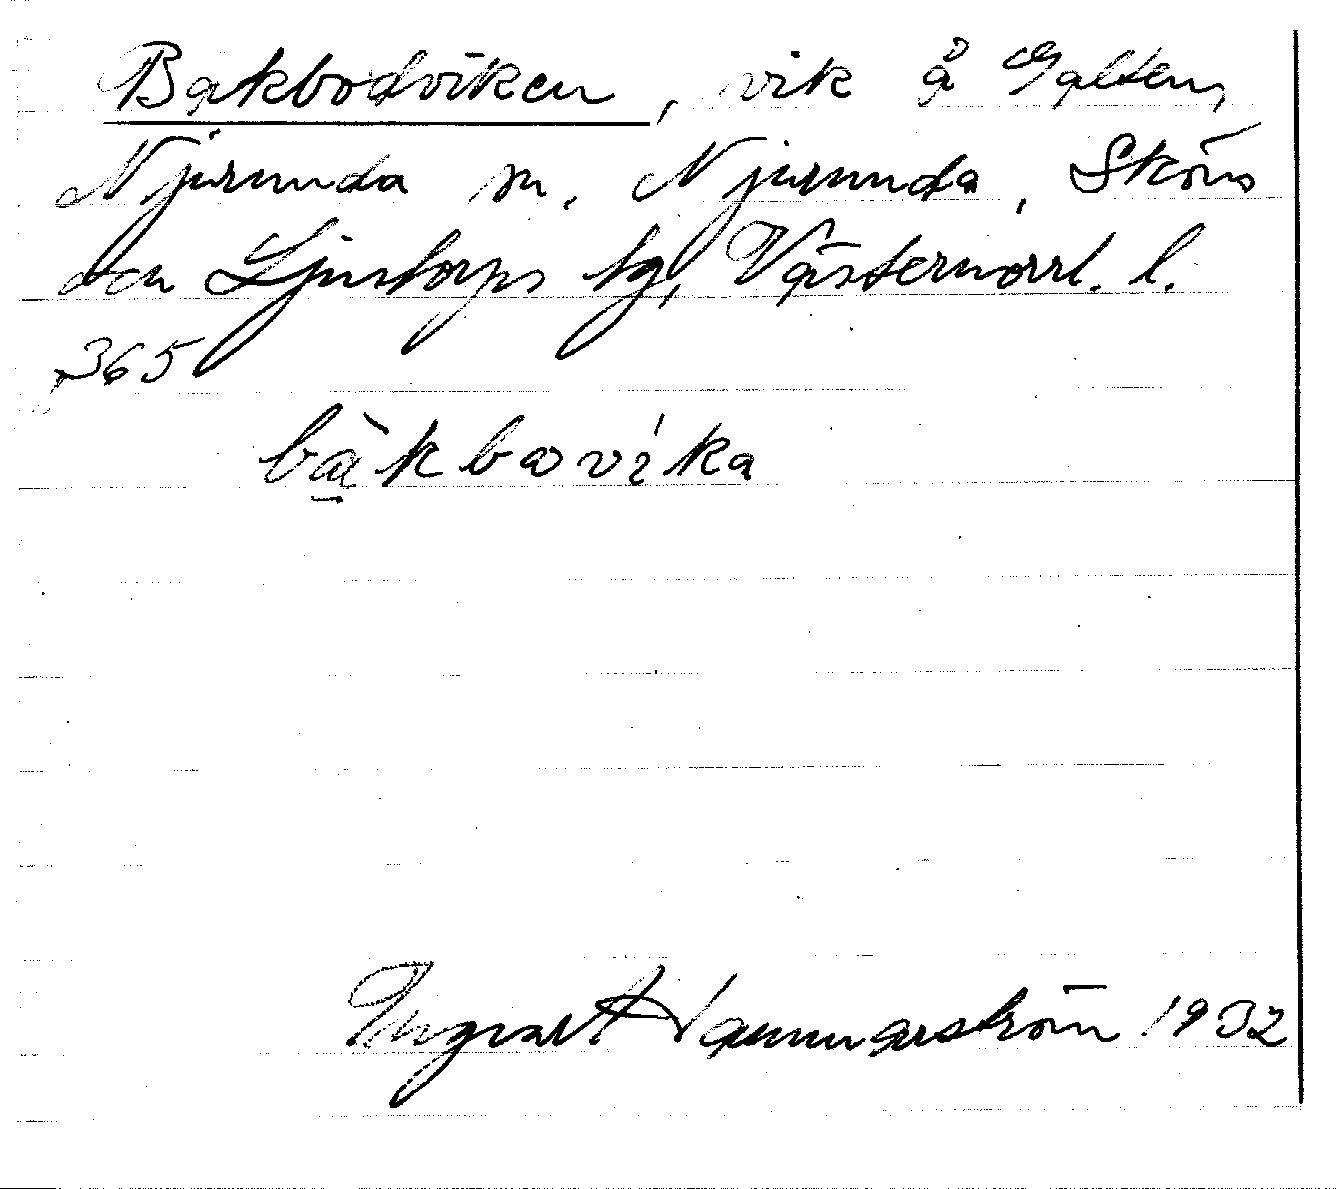 Bakbodviken, vik å Galten,
Njurunda sn. Njurunda, Sköns
och Ljustorps tg, Västernorrl. l.
365
bàkbovika
Ingvar Hammarström 1932